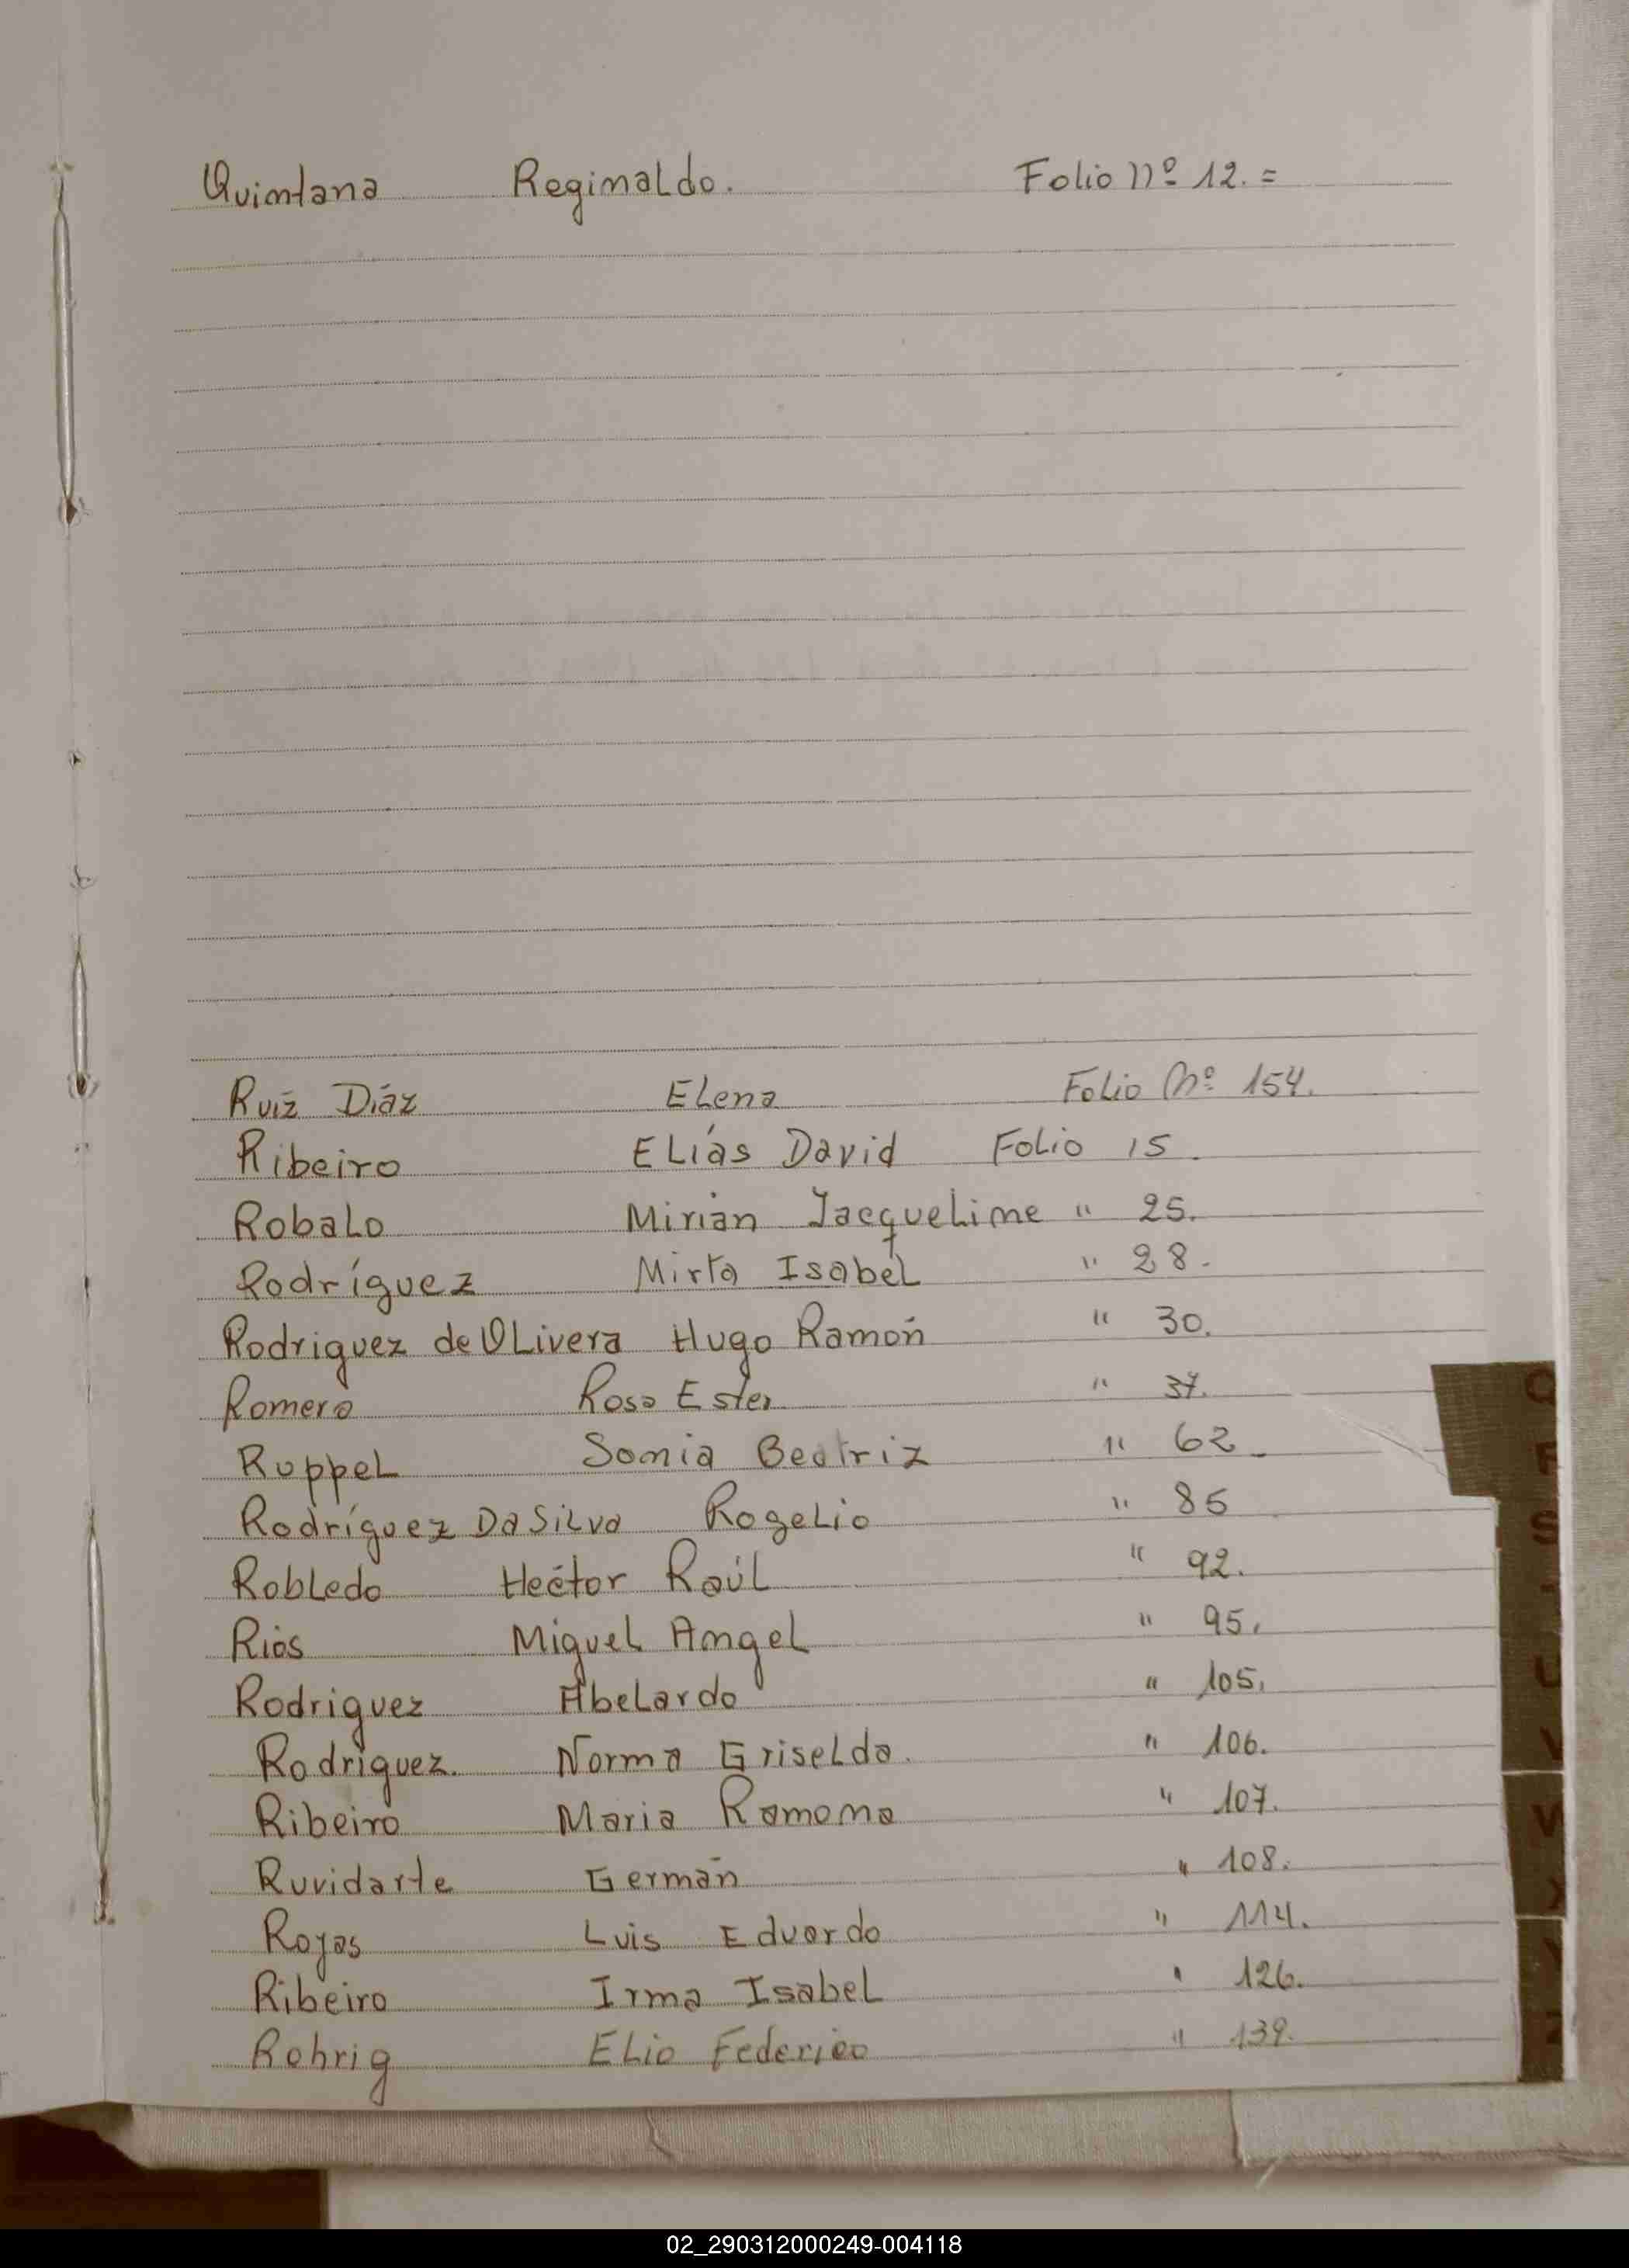 Quintana Reginaldo. Folio nº 12. =
Ruiz Díaz Elena Folio Nº 154.
Ribeiro Elías David Folio 15.
Robalo Mirian Jacqueline " 25.
Rodríguez Mirta Isabel " 28.
Rodriguez de Olivera Hugo Ramón " 30.
Romero Rosa Ester " 37.
Ruppel Sonia Beatriz " 62
Rodríguez Da Silva Rogelio " 85
Robledo Héctor Raúl " 92.
Rios Miguel Angel " 95.
Rodriguez Abelardo " 105.
Rodriguez. Norma Griselda. " 106.
Ribeiro Maria Ramona " 107.
Ruvidarte Germán " 108.
Rojas Luis Eduardo " 114.
Ribeiro Irma Isabel " 126.
Rohrig Elio Federico " 139.
02_290312000249-004118